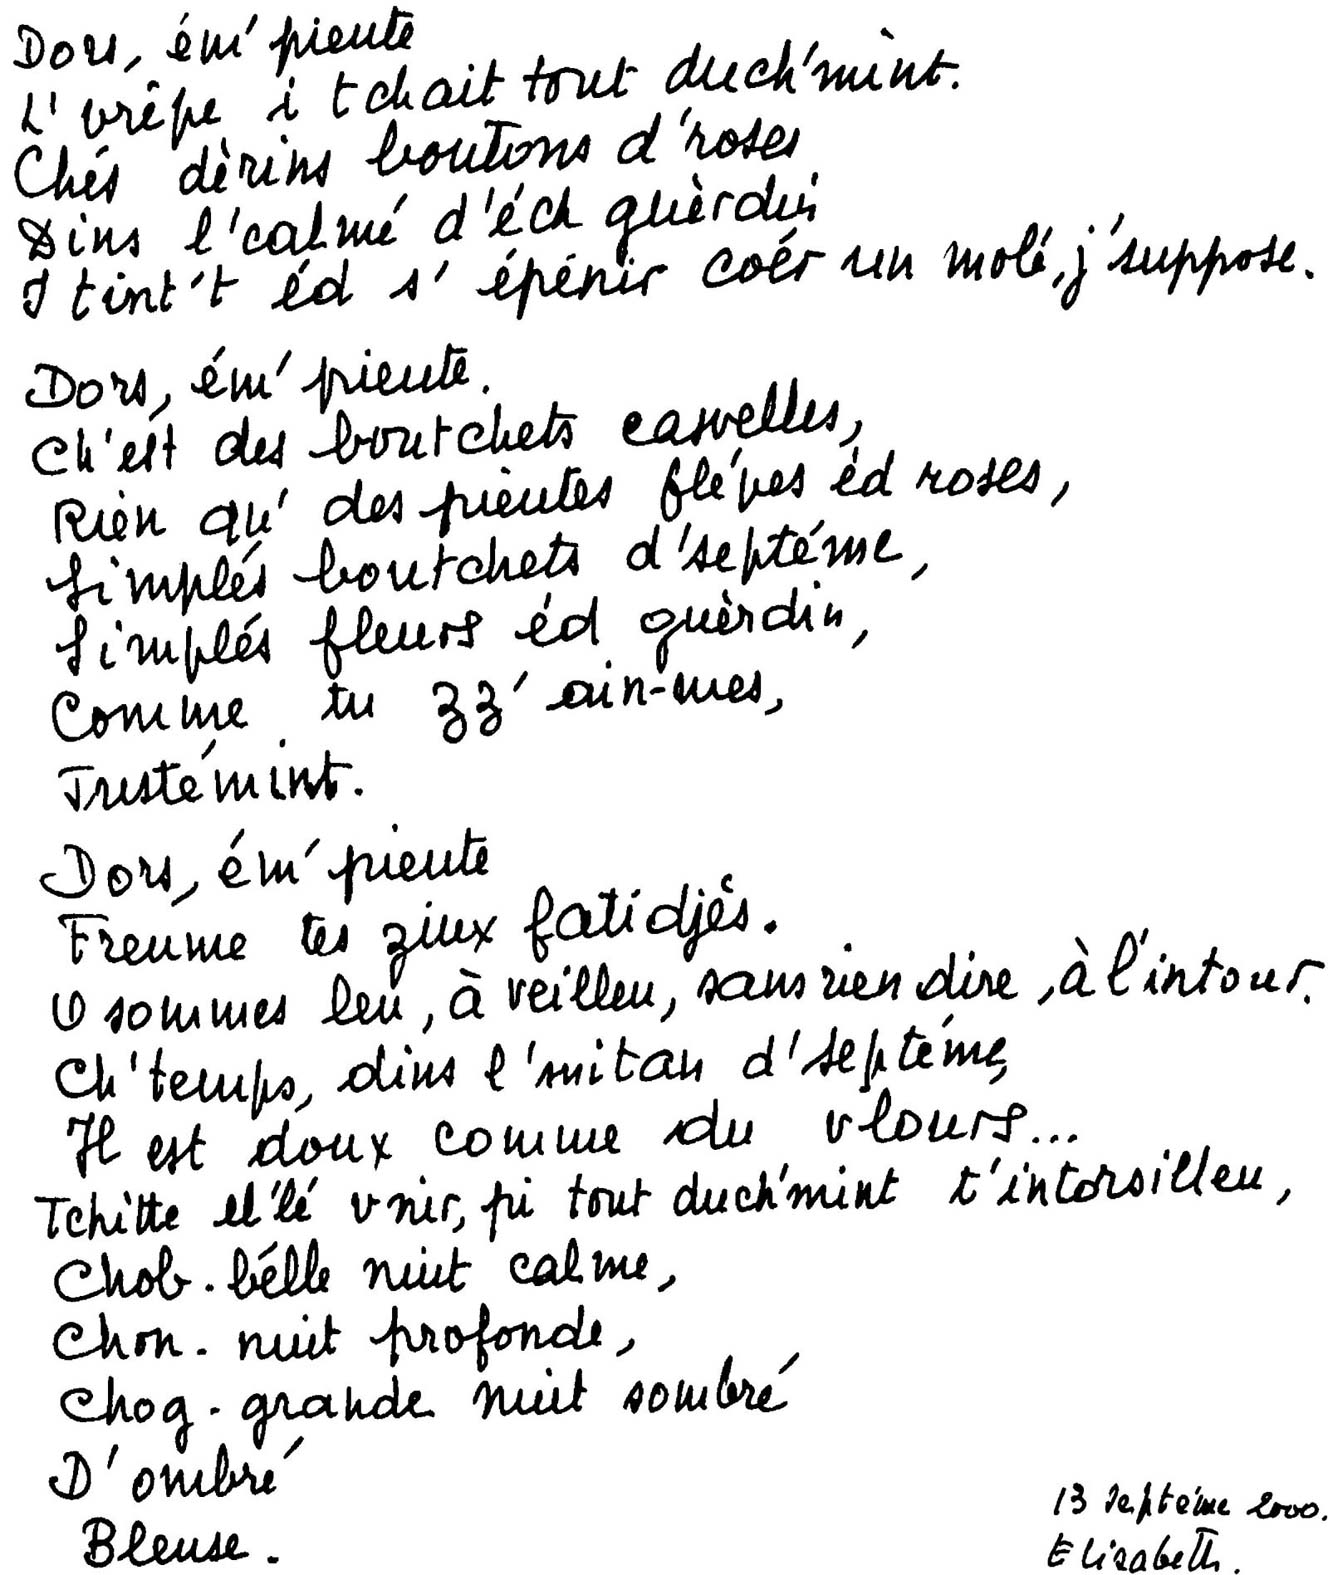 Dors, ém' pieute
L' vrêpe i tchait tout duch'mint.
Chés dèrins boutons d'roses
Dins l'calmé d'éch guèrdin
I tint't éd s' épénir coér un molé, j'suppose.
Dors, ém' pieute.
Ch'est des boutchets casuelles,
Rien qu' des pieutes flépes éd roses,
Simplés boutchets d'septéme,
Simplés fleurs éd guèrdin,
Comme tu zz' ain-mes,
Tristémint.
Dors, ém' pieute
Freume tes ziux fatidjés.
O sommes leu, à veilleu, sans rien dire, à l'intour.
Ch'temps, dins l'mitan d'septéme,
Il est doux comme du vlours...
Tchitte ll'lé vnir, pi tout duch'mint t'intorsilleu,
Chob-bélle nuit calme,
Chon-nuit profonde,
Chog-grande nuit sombré
D'ombré
Bleuse.
13 septéme 2000.
Elisabeth.